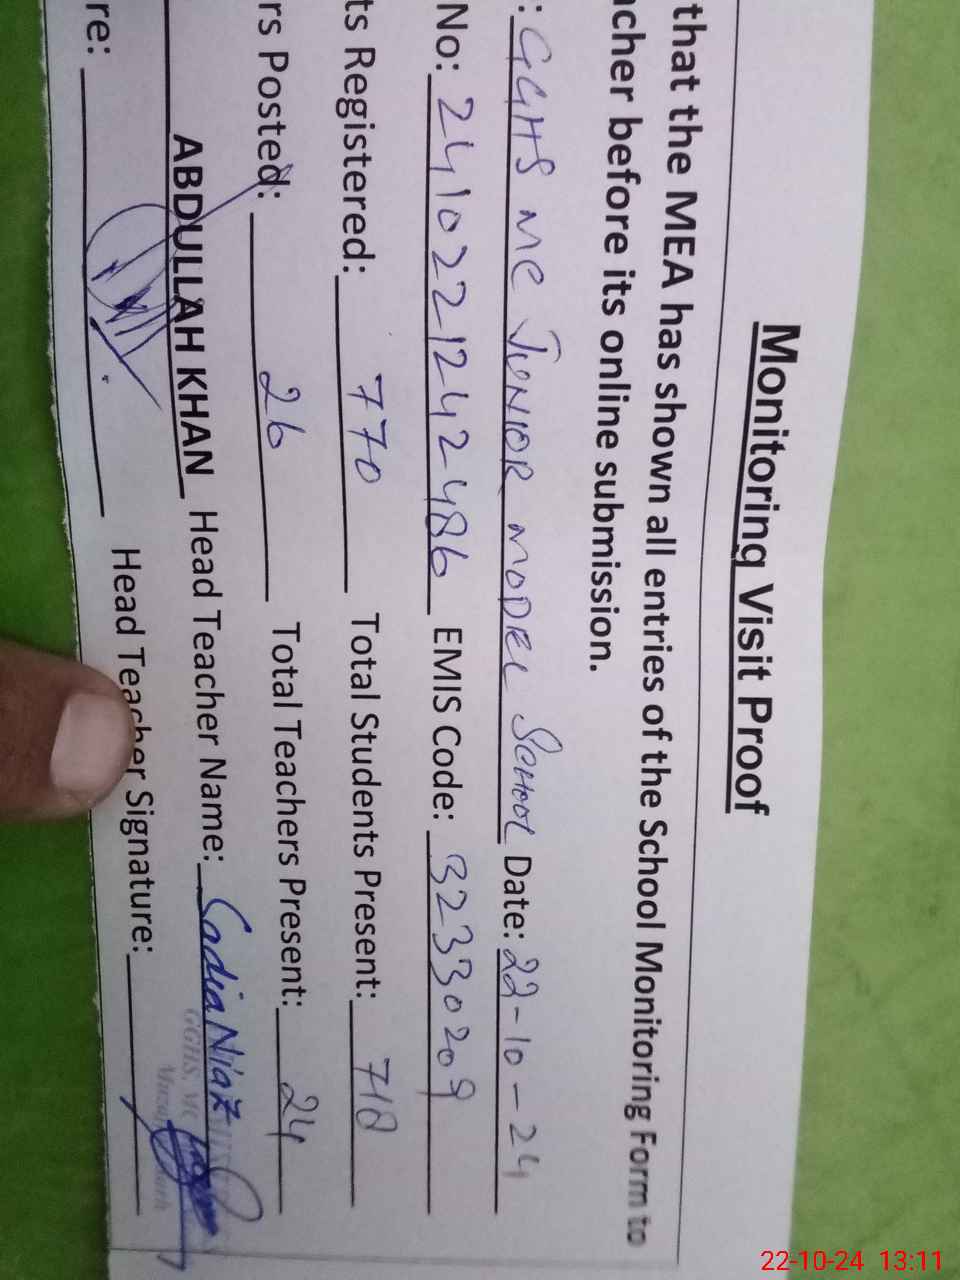 Monitoring Visit Proof
that the MEA has shown all entries of the School Monitoring Form to
acher before its online submission.
: GGHS MC JUNIOR MODEL SCHOOL Date: 22-10-24
No: 2410221242486 EMIS Code: 32330209
ts Registered: 770 Total Students Present: 718
rs Posted: 26 Total Teachers Present: 24
ABDULLAH KHAN Head Teacher Name: Sadia Niaz
re: Head Teacher Signature:
GGHS, MC
22-10-24 13:11